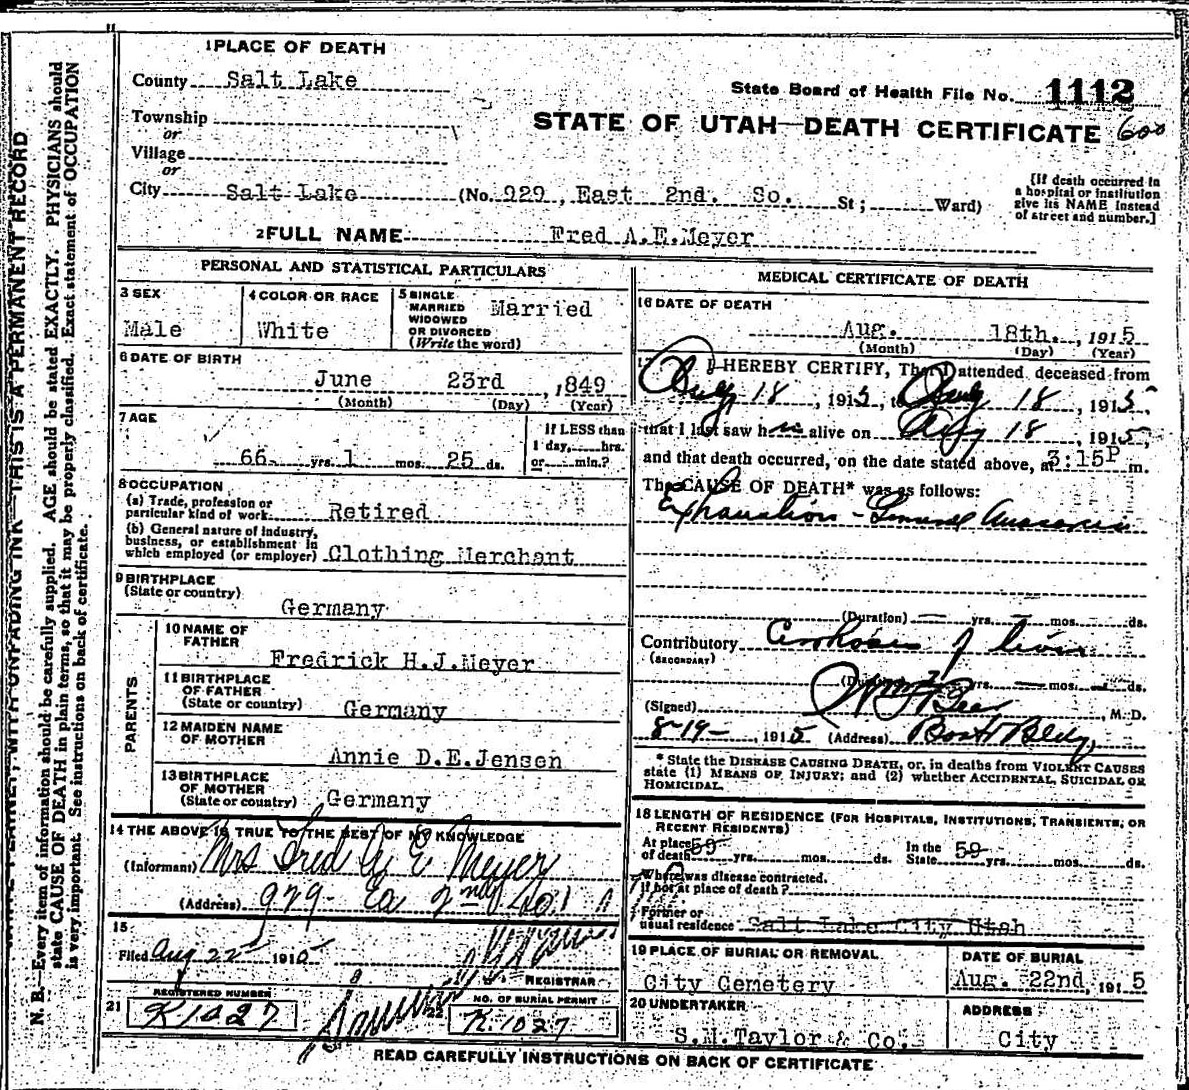 1 PLACE OF DEATH
County Salt Lake
State Board of Health File No. 1112
Township
or
STATE OF UTAH—DEATH CERTIFICATE 600
Village
or
City Salt Lake (No. 929, East 2nd. So. St; Ward)
[If death occurred in
a hospital or institution
give its NAME instead
of street and number.]
2 FULL NAME Fred A.E.Meyer
PERSONAL AND STATISTICAL PARTICULARS
3 SEX
Male
4 COLOR OR RACE
White
5 SINGLE
MARRIED
WIDOWED
OR DIVORCED
(Write the word)
Married
6 DATE OF BIRTH
June 23rd ,1849
(Month) (Day) (Year)
7 AGE
66 yrs. 1 mos. 25 ds.
If LESS than
1 day, hrs.
or min.?
8 OCCUPATION
(a) Trade, profession or
particular kind of work Retired
(b) General nature of industry,
business, or establishment in
which employed (or employer) Clothing Merchant
9 BIRTHPLACE
(State or country)
Germany
PARENTS
10 NAME OF
FATHER
Fredrick H.J.Meyer
11 BIRTHPLACE
OF FATHER
(State or country) Germany
12 MAIDEN NAME
OF MOTHER
Annie D.E.Jensen
13 BIRTHPLACE
OF MOTHER
(State or country) Germany
14 THE ABOVE IS TRUE TO THE BEST OF MY KNOWLEDGE
(Informant) Mrs Fred A E Meyer
(Address) 929 Ea 2nd So.
15
Filed Aug 22 1915
REGISTRAR
21 REGISTERED NUMBER
K1027
22 NO. OF BURIAL PERMIT
K.1027
MEDICAL CERTIFICATE OF DEATH
16 DATE OF DEATH
Aug. 18th. , 1915
(Month) (Day) (Year)
17 I HEREBY CERTIFY, That I attended deceased from
Aug 18, 1915, to Aug 18, 1915,
that I last saw him alive on Aug 18, 1915,
and that death occurred, on the date stated above, at 3:15P m.
The CAUSE OF DEATH* was as follows:
Exhaustion - General Anasarca
(Duration) yrs. mos. ds.
Contributory Cirrhosis of liver
(SECONDARY)
(Duration) yrs. mos. ds.
(Signed) Beer, M. D.
8-19-, 1915 (Address) Bost Bldg,
* State the DISEASE CAUSING DEATH, or, in deaths from VIOLENT CAUSES
state (1) MEANS OF INJURY; and (2) whether ACCIDENTAL, SUICIDAL OR
HOMICIDAL.
18 LENGTH OF RESIDENCE (FOR HOSPITALS, INSTITUTIONS, TRANSIENTS, OR
RECENT RESIDENTS)
At place
of death 59 yrs. mos. ds. In the
State 59 yrs. mos. ds.
Where was disease contracted.
If not at place of death?
Former or
usual residence Salt Lake City Utah
19 PLACE OF BURIAL OR REMOVAL
City Cemetery
DATE OF BURIAL
Aug. 22nd, 1915
20 UNDERTAKER
S.M.Taylor & Co.
ADDRESS
City
READ CAREFULLY INSTRUCTIONS ON BACK OF CERTIFICATE
WRITE PLAINLY, WITH UNFADING INK—THIS IS A PERMANENT RECORD
N. B.—Every item of information should be carefully supplied. AGE should be stated EXACTLY. PHYSICIANS should
state CAUSE OF DEATH in plain terms, so that it may be properly classified. Exact statement of OCCUPATION
is very important. See instructions on back of certificate.